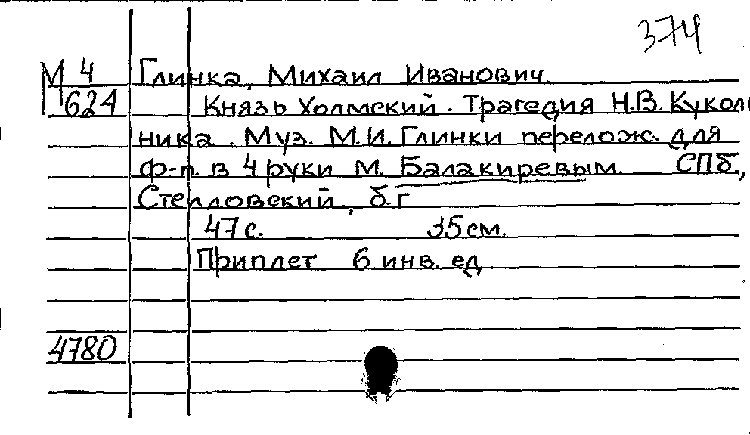 374
М 4 Глинка, Михаил Иванович.
624 Князь Холмский. Трагедия Н.В. Куколь
ника. Муз. М.И. Глинки перелож. для
ф-п. в 4 руки М. Балакиревым. СПб.,
Стелловский, б.г
47 с. 35 см.
Приплет 6 инв. ед
4780